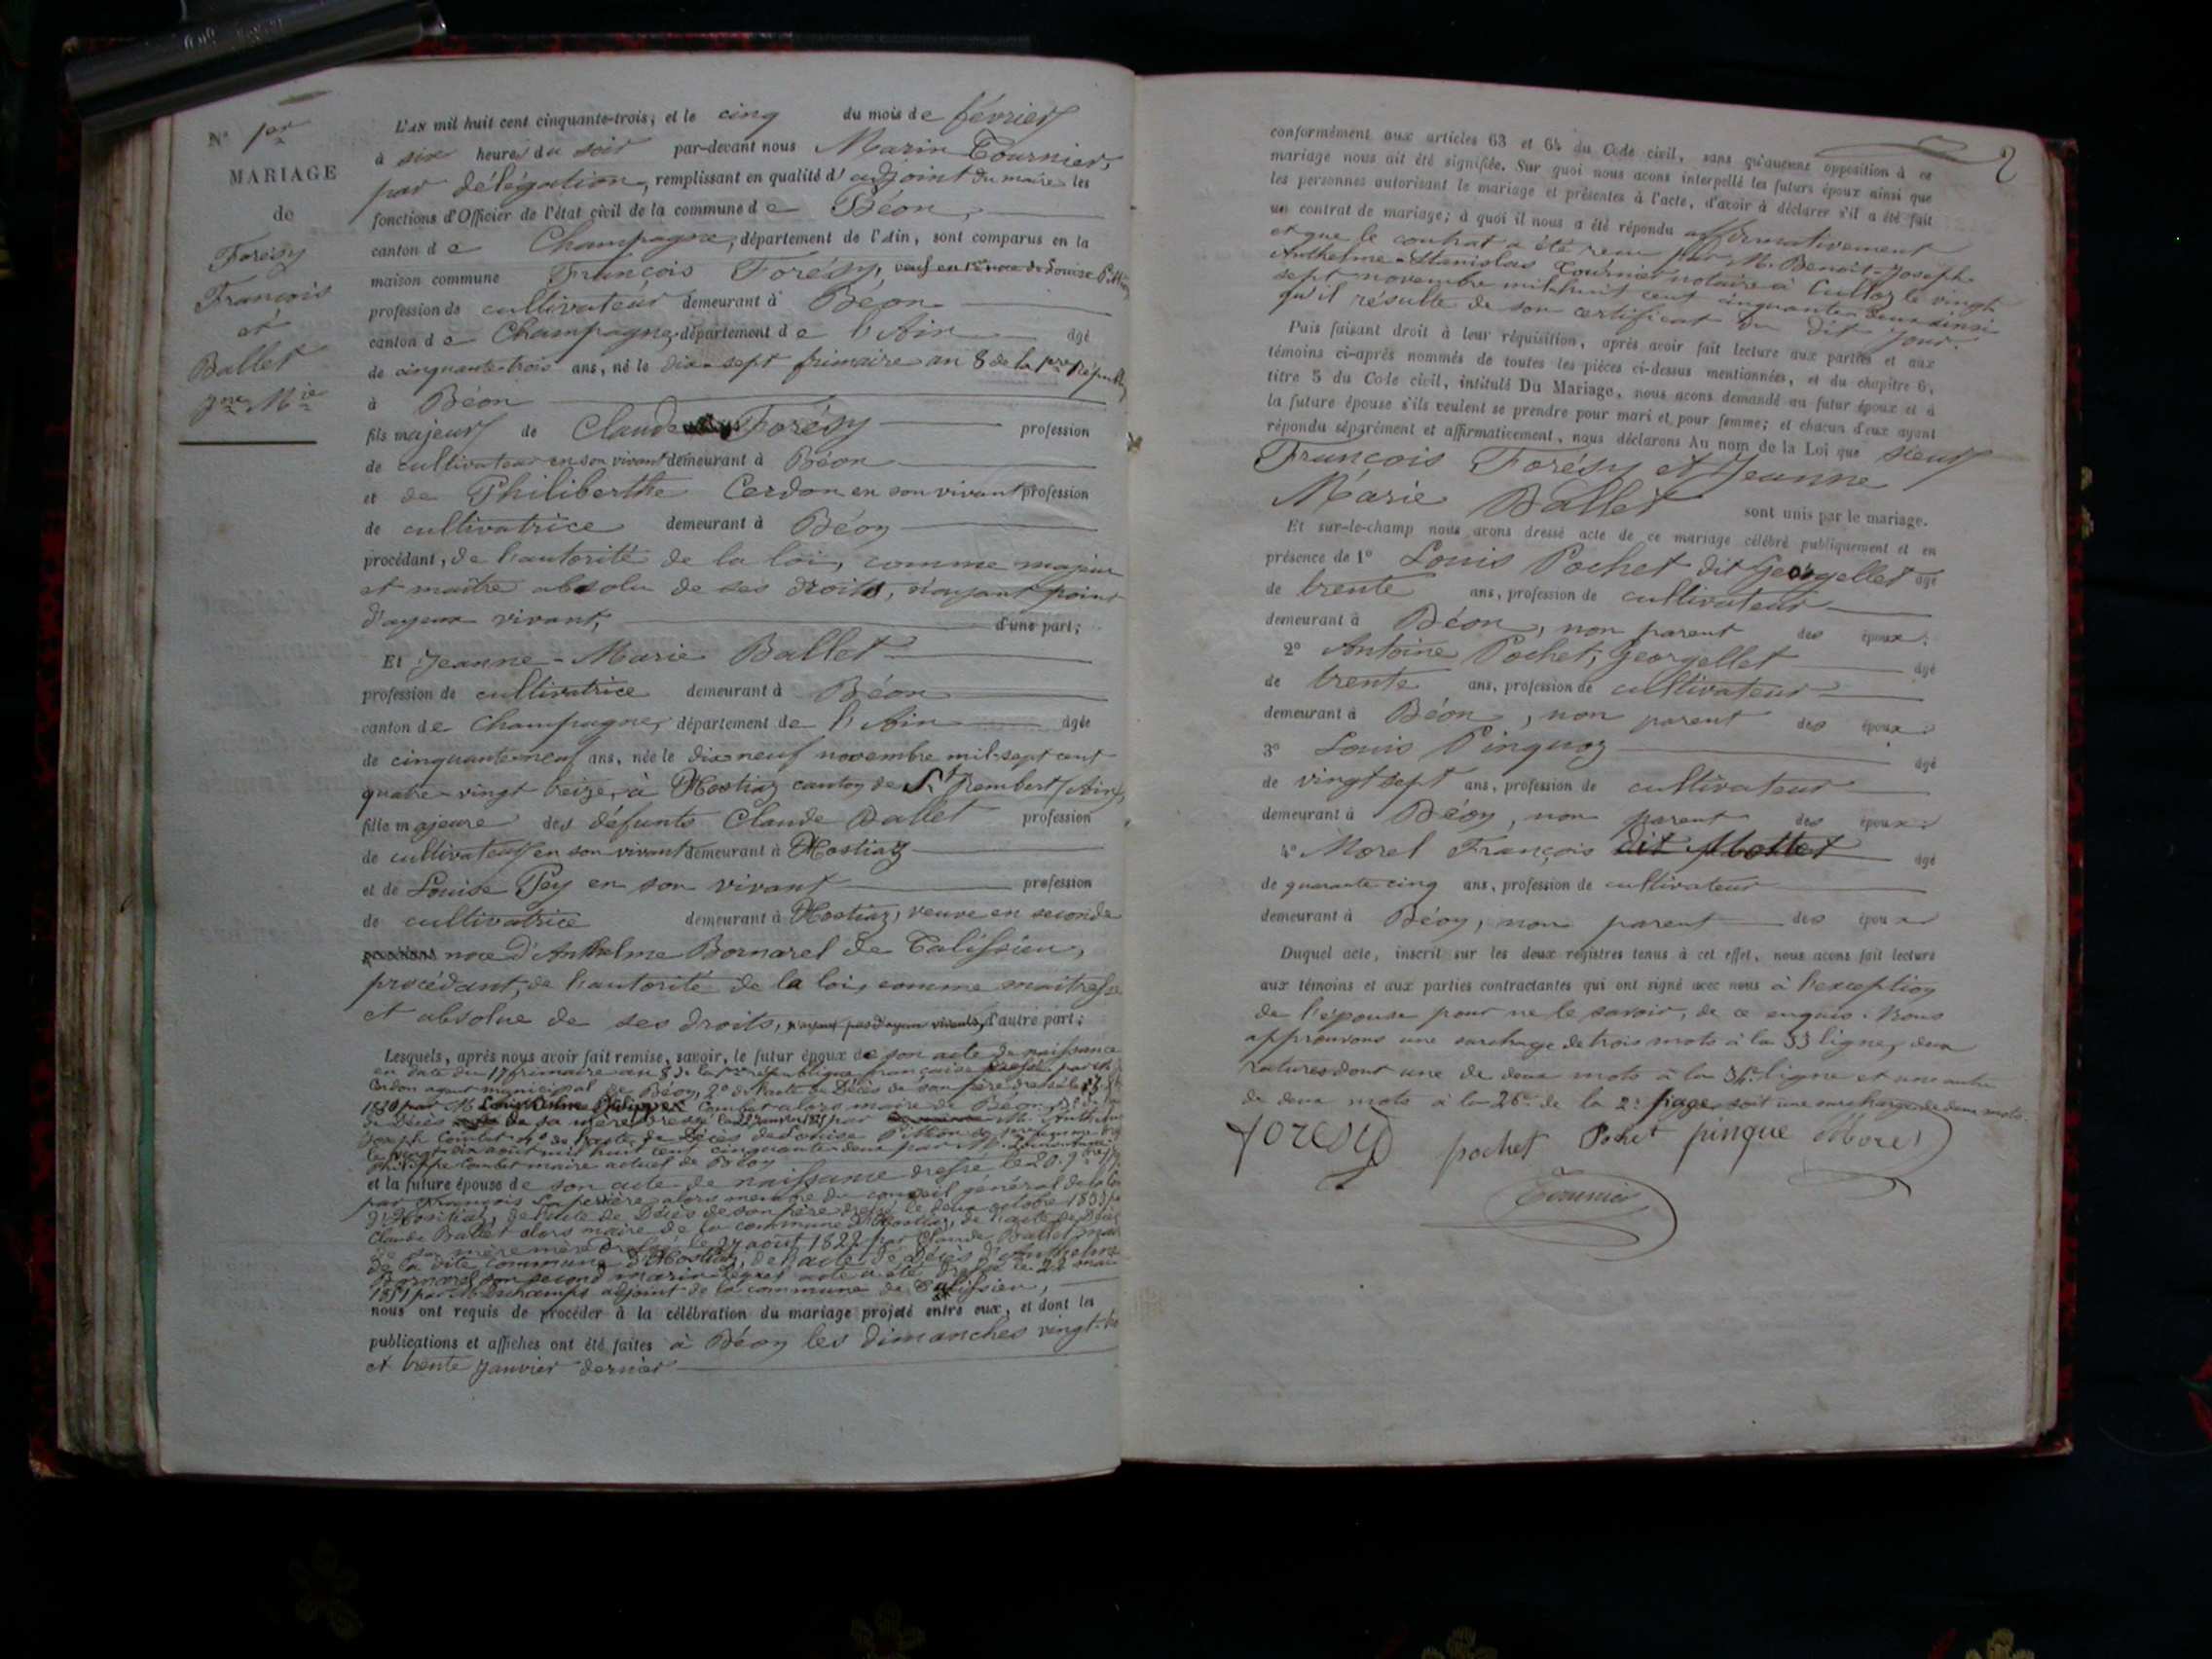 N° 1er
MARIAGE
de
Forésy
François
et
Ballet
Jne Mie
L'AN mil huit cent cinquante-trois, et le cinq du mois de février
à six heures du soir par-devant nous Marin Tournier,
par délégation, remplissant en qualité d'adjoint du maire les
fonctions d'Officier de l'état civil de la commune de Béon,
canton de Champagne, département de l'Ain, sont comparus en la
maison commune François Forésy, veuf en 1re noce de Louise Pitton
profession de cultivateur demeurant à Béon
canton de Champagne, département de l'Ain âgé
de cinquante-trois ans, né le dix-sept frimaire an 8 de la 1re Répub
à Béon
fils majeur de Claude Forésy profession
de cultivateur en son vivant demeurant à Béon
et de Philiberthe Cerdon en son vivant profession
de cultivatrice demeurant à Béon
procédant, de l'autorité de la loi, comme majeur
et maître absolu de ses droits, n'ayant point
d'ayeux vivant, d'une part;
Et Jeanne-Marie Ballet
profession de cultivatrice demeurant à Béon
canton de Champagne, département de l'Ain âgée
de cinquante-neuf ans, née le dix-neuf novembre mil-sept cent
quatre-vingt treize, à Hostiaz canton de St Rembert (Ain),
fille majeure des défunts Claude Ballet profession
de cultivateur en son vivant demeurant à Hostiaz
et de Louise Pey en son vivant profession
de cultivatrice demeurant à Hostiaz, veuve en seconde
noce d'Anthelme Bornarel de Talissieu,
procédant, de l'autorité de la loi, comme maîtresse
et absolue de ses droits, n'ayant pas d'ayeux vivants, d'autre part;
Lesquels, après nous avoir fait remise, savoir, le futur époux de son acte de naissance
en date du 17 frimaire an 8 de la 1re république française dressé par
Cerdon agent municipal de Béon, 2° de l'acte de Décès de son père dressé le
1830 par M. Combet alors maire de Béon, 3° de l'
de Décès de sa mère dressé le 22 par M. Anth
Joseph Combet 4° de l'acte de Décès de Louise Pitton sa 1re femme
le vingt-six août mil huit cent cinquante-deux par M.
Philippe Combet maire actuel de Béon
et la future épouse de son acte de naissance dressé le 20 9bre
par François alors membre du conseil général de la
d'Hostiaz, de l'acte de Décès de son père dressé le deux octobre
Claude Ballet alors maire de la commune d'Hostiaz, de l'acte de Décès
de sa mère dressé le 27 août 1822 par Claude Ballet
de la dite commune d'Hostiaz, de l'acte de Décès d'Anthelme
Bornarel son second mari lequel acte a été dressé le 22 mai
1851 par M. Deschamps adjoint de la commune de Talissieu,
nous ont requis de procéder à la célébration du mariage projeté entre eux, et dont les
publications et affiches ont été faites à Béon les dimanches vingt-
et trente Janvier dernier
2
conformément aux articles 63 et 64 du Code civil, sans qu'aucune opposition à ce
mariage nous ait été signifiée. Sur quoi nous avons interpellé les futurs époux ainsi que
les personnes autorisant le mariage et présentes à l'acte, d'avoir à déclarer s'il a été fait
un contrat de mariage; à quoi il nous a été répondu affirmativement
et que le contrat a été reçu par M. Benoit-Joseph-
Anthelme-Stanislas Tournier notaire à Culloz le vingt
sept novembre mil huit cent cinquante-deux ainsi
qu'il résulte de son certificat du dit jour.
Puis faisant droit à leur réquisition, après avoir fait lecture aux parties et aux
témoins ci-après nommés de toutes les pièces ci-dessus mentionnées, et du chapitre 6,
titre 5 du Code civil, intitulé Du Mariage, nous avons demandé au futur époux et à
la future épouse s'ils veulent se prendre pour mari et pour femme; et chacun d'eux ayant
répondu séparément et affirmativement, nous déclarons Au nom de la Loi que sieur
François Forésy et Jeanne
Marie Ballet sont unis par le mariage.
Et sur-le-champ nous avons dressé acte de ce mariage célébré publiquement et en
présence de 1° Louis Pochet dit Georgellet âgé
de trente ans, profession de cultivateur
demeurant à Béon, non parent des époux;
2° Antoine Pochet, Georgellet âgé
de trente ans, profession de cultivateur
demeurant à Béon, non parent des époux;
3° Louis Pinquoz âgé
de vingt sept ans, profession de cultivateur
demeurant à Béon, non parent des époux;
4° Morel François dit Mottet âgé
de quarante cinq ans, profession de cultivateur
demeurant à Béon, non parent des époux
Duquel acte, inscrit sur les deux registres tenus à cet effet, nous avons fait lecture
aux témoins et aux parties contractantes qui ont signé avec nous à l'exception
de l'épouse pour ne le savoir, de ce enquis. Nous
approuvons une surcharge de trois mots à la 33 ligne, deux
ratures dont une de deux mots à la 34e ligne et une autre
de deux mots à la 26e de la 2e page, soit une surcharge de deux mots.
Forésy pochet Pochet pinque Morel
Tournier